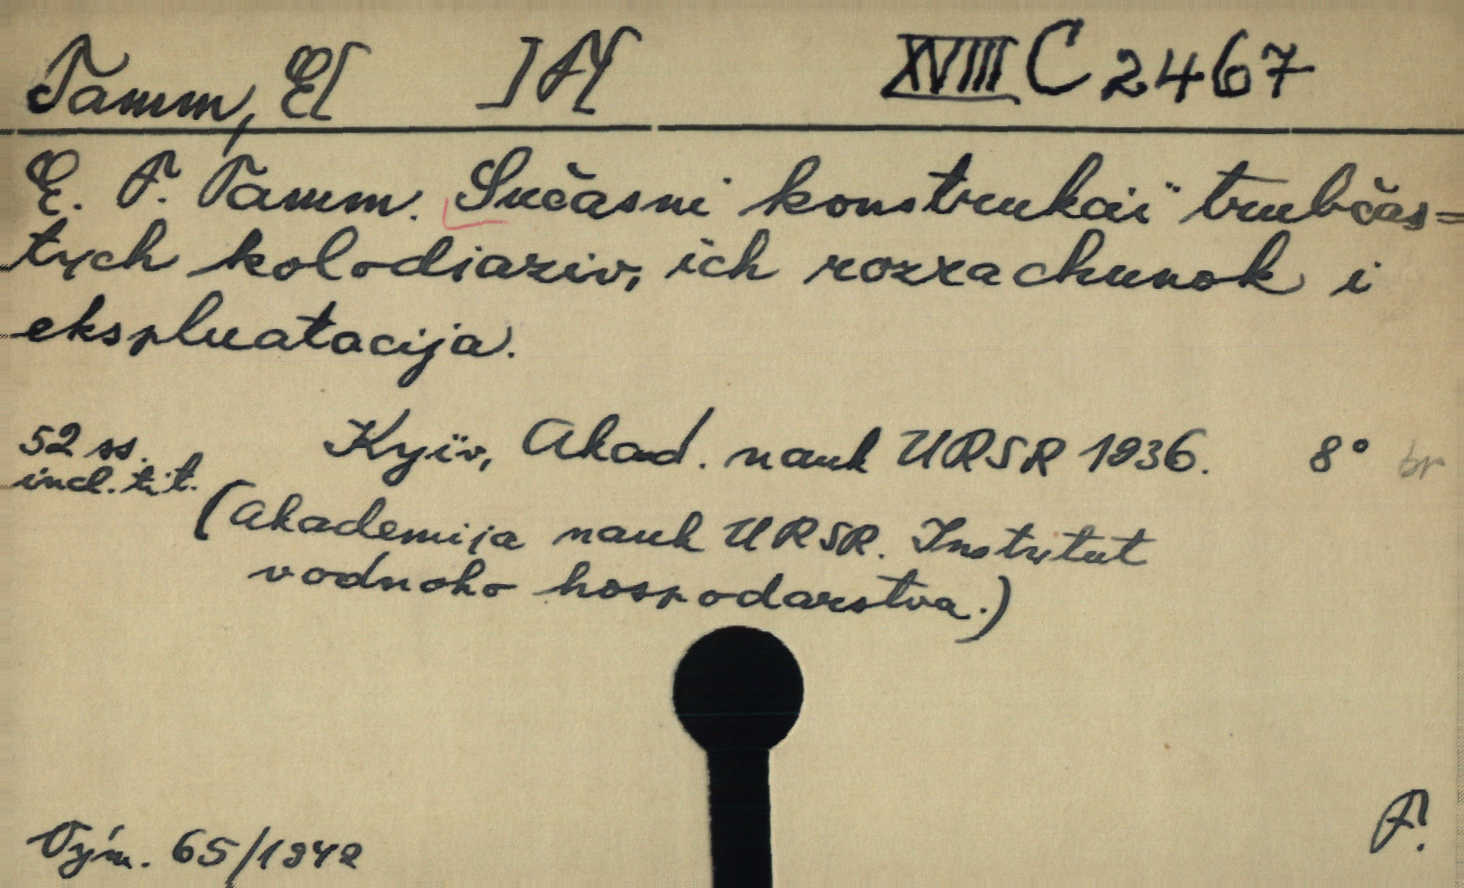 Tamm, E[ ] F[ XVIII C 2467
E. F. Tamm. Sučasni konstrukcii trubčas=
tych kolodiaziv, ich rozrachunok i
ekspluatacija.
52 ss. Kyïv, Akad. nauk URSR 1936. 8° br
incl. tit.
(Akademija nauk URSR. Instytut
vodnoho hospodarstva.)
Vým. 65/1942
F.